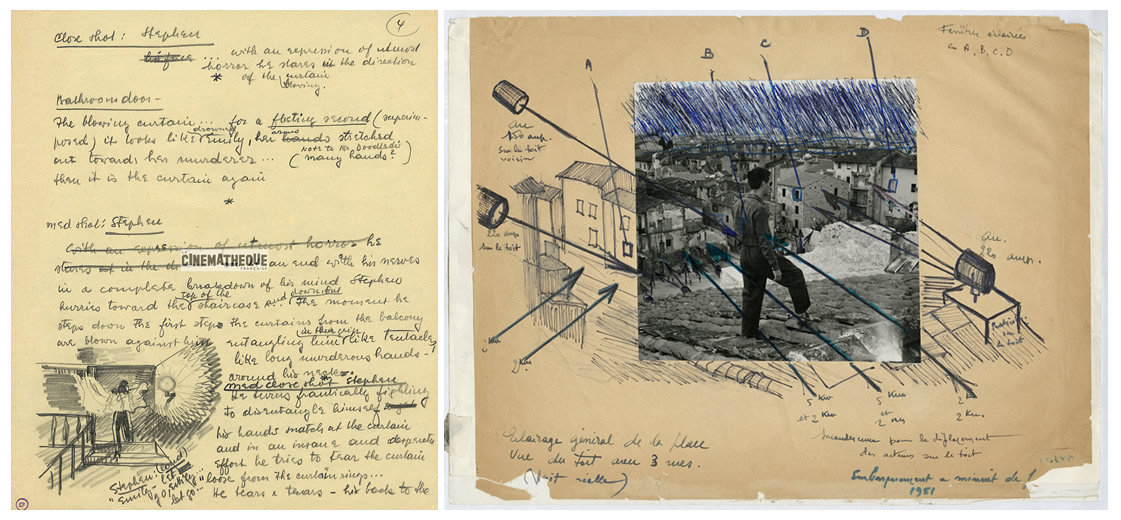 4
Close shot: Stephen
his face ... with an expression of utmost
horror he stares in the direction
* of the curtain
blowing.
Bathroom door -
The blowing curtain... for a fleeting second (superim-
posed) it looks like drowned Emily, her hands arms stretched
out towards her murderer... (NOTE to Mr. many hands?)
then it is the curtain again
*
med shot: Stephen
With an expression of utmost horror he
stares at in the
CINEMATHEQUE
FRANÇAISE
an end with his nerves
in a complete breakdown of his mind Stephen
hurries toward the top of the staircase and down but The moment he
steps down the first steps the curtains from the balcony
are blown against him entangling him in their grip like tentacles
like long murderous hands -
around his neck.
med close shot Stephen
He turns frantically fighting
to disentangle himself
his hands snatch at the curtain
and in an insane and desperate
effort he tries to tear the curtain
loose from the curtain rings...
He tears & tears - his back to the
Stephen:
"Emily let
go, Emily
let go..."
A
B
C
D
Fenêtres éclairées
en A, B, C, D
arc
150 amp.
sur le toit
voisin
220 amp.
sur le toit
arc.
220 amp.
Praticable
sur
le toit
2 Kw
5 Kw
et 2 Kw
5 Kw
et
2
2 Kw.
Eclairage général de la place
Vue du toit avec 3 rues.
(Nuit réelle)
Incandescence pour le déplacement
des acteurs sur le toit
Embarquement a minuit de
1951